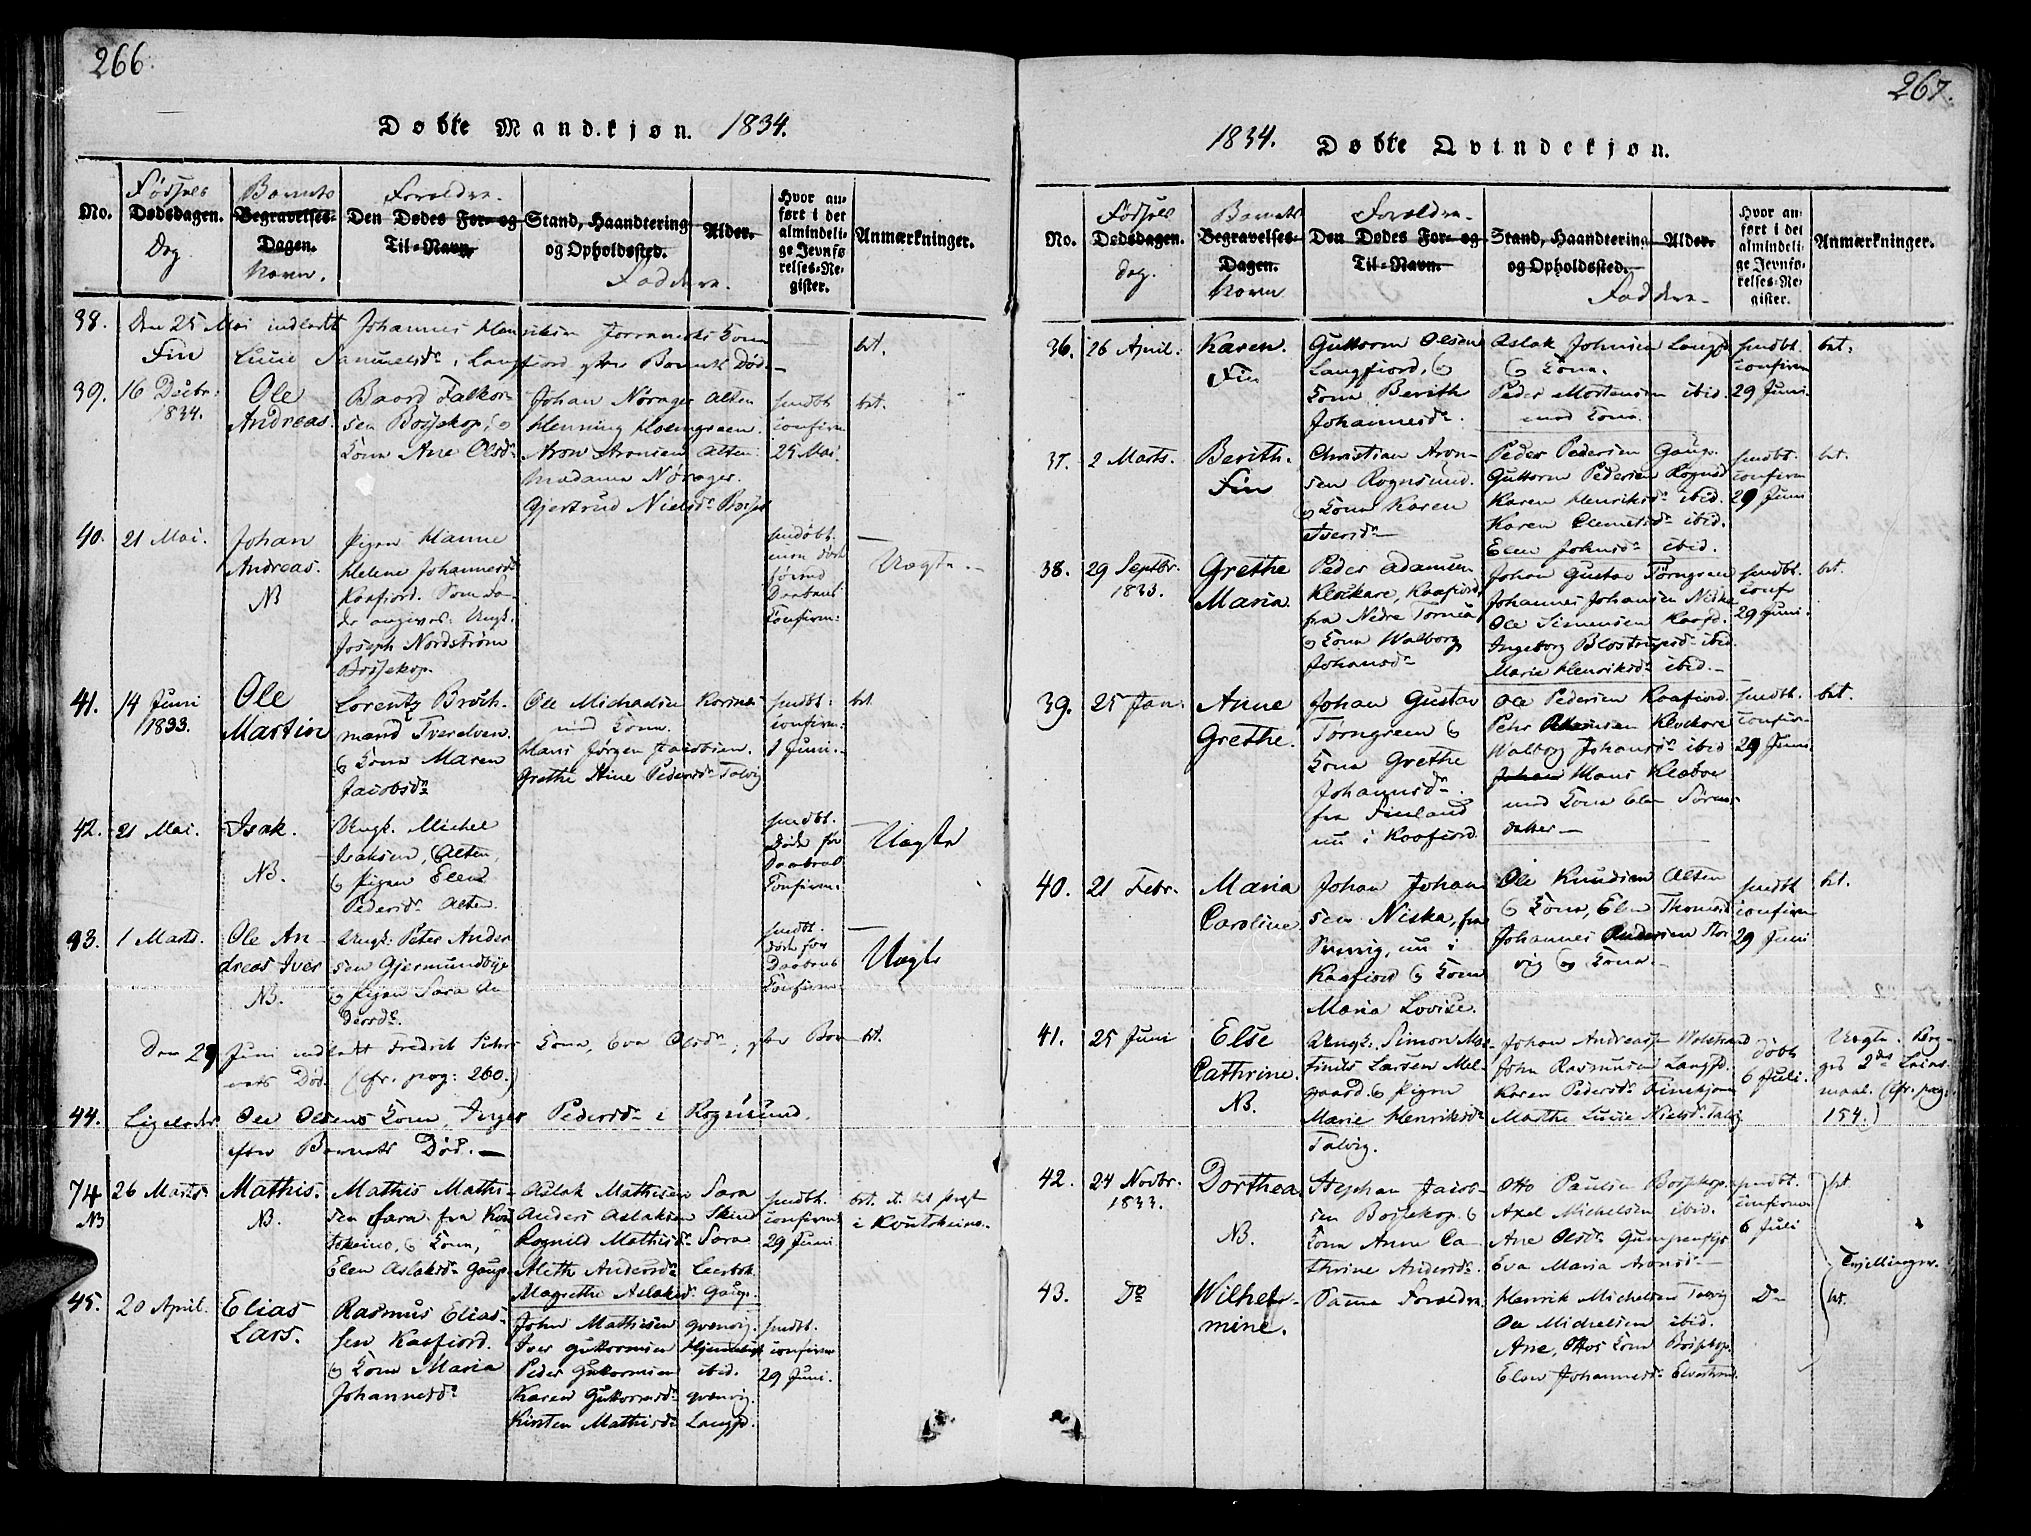 266.
Døbte Mandkjøn. 1834.
No.
Fødsels
Dødsdagen.
Dag
Barnets
Begravelses-
Dagen.
Navn.
Forældre.
Den Dødes For- og
Til-Navn.
Stand, Haandtering
og Opholdssted.
Alder.
Faddere.
Hvor an-
ført i det
almindeli-
ge Jevnfø-
relses-Re-
gister.
Anmærkninger.
38. Den 25 Mai indledt Johannes Henriksen Kone
Fin Lucie Samuelsdr i Langfjord efter Barnets Død.
bet.
39. 16 Decbr.
1834.
Ole
Andreas.
Baard Falkor-
sen Bossekop, og
Kona Ane Olsdr
Johan Nørager Alten
Henning Holmgreen.
Aron Aronsen Alten
Madame Nørager.
Gjertrud Nielsdr Bossk
hmdbt.
confirm
25 Mai.
bet.
40. 21 Mai.
Johan
Andreas.
NB
Pigen Hanne
Helene Johannesdr
Kaafjord. Som Fa-
der angives: Ungk.
Joseph Nordstrøm
Bossekop.
hmdøbt
men død
førend
Daabens
Confirm:
Uægte.
41. 14 Juni
1833.
Ole
Martin
Lorentz Broch-
mand Tverelven.
og Kona Maren
Jacobsdr
Ole Michaelsen
med Kona.
Hans Jørgen Jacobsen.
Grethe Stine Pedersdr Talvig
hmdbt:
confirm:
1 Juni.
bt.
42. 21 Mai.
Isak.
NB.
Ungk. Michel
Isaksen, Alten,
og Pigen Elen
Pedersdr Alten.
hmdbt.
Døde før
Daabens
Confirm:
Uægte
43. 1 Marts.
Ole An-
dreas Iver
NB.
Ungk: Peter Ander
sen Gjermundbye
og Pigen Sara An
dersdr.
hmdbt.
døde før
Daabens
Confirm:
Uægte
Den 29 Juni indledt Fredrik Kona, Eva Olsdr, efter Bar-
nets Død. (cfr. pag: 260.)
bt.
44. Ligeledes Ole Olsens Kona, Inger Pedersdr i Rognsund,
efter Barnets Død.
74
NB
26 Marts
Mathis.
NB.
Mathis Mathi-
sen Sara fra Kou
tokeino, og Kona,
Elen Aslaksdr Gaup.
Aslak Mathisen Sara
Anders Aslaksen Skind
Rognild Mathisdr Sara
Meth Andersdr
Magrethe Aslaksdr Gaup.
hmdbt.
confirm:
29 Juni
bet. til
i Koutokeino.
45. 20 April.
Elias
Lars.
Rasmus Elias-
sen Kaafjord.
og Kone Maria
Johannesdr
John Mathisen qvænvig.
Iver Guttormsen
Peder Guttormsen ibid.
Karen Guttormsdr qvænvig.
Kirsten Mathisdr Langfd.
hmdbt.
confirm
29 Juni.
267.
1834. Døbte Qvindekjøn.
No.
Fødsels
Dødsdagen.
dag.
Barnets
Begravelses-
Dagen.
Navn
Forældre.
Den Dødes For- og
Til-Navn.
Stand, Haandtering
og Opholdssted.
Alder.
Faddere.
Hvor an-
ført i det
almindeli-
ge Jevnfø-
relses-Re-
gister.
Anmærkninger.
36. 26 April.
Karen.
Fin
Guttorm Olsen
Langfiord, og
Kona Berith
Johannesdr.
Aslak Johnsen Langfd
og Kona.
Peder Mortensen ibid.
med Kona.
hmdbt.
confirm
29 Juni.
bet.
37. 2 Marts.
Berith.
Fin
Christian Aron-
sen Rognsund.
og Kona Karen
Iversdr
Peder Pedersen Gaup.
Guttorm Pedersen Rognsd
Karen Henriksdr ibid.
Karen Clemetsdr ibid.
Elen Johnsdr ibid.
hmdbt.
confirm
29 Juni
bet.
38. 29 Septbr.
1833.
Grethe
Maria
Peder Adamsen
Klockare, Kaafiord,
fra Nedre Torneå
og Kona Walborg
Johansdr
Johan Gustav Törngreen
Johannes Johansen Niska
Ole Simensen Kaafd.
Ingeborg ibid.
Marie Henriksdr ibid.
hmdbt.
conf
29 Juni
bet.
39. 25 Jan:
Anne
Grethe.
Johan Gustav
Törngreen og
Kona Grethe
Johansdr.
fra Finland
nu i Kaafiord
Ole Pedersen Kaafiord.
Pehr Klockare
Walborg Johansdr ibid
Johan Hans Kladoe
med Kona Elen Søren-
datter
hmdbt.
confirm
29 Juni
bet.
40. 21 Febr.
Maria
Caroline
Johan Johan
sen Niska, fra
Sverrig, nu i
Kaafiord og Kona
Maria Lovise.
Ole Knudsen Alten
og Kona, Elen Thomasd
Johannes Andersen Stor
vig og Kona.
hmdbt
confirm
29 Juni
bt.
41. 25 Juni
Else
Cathrine.
NB.
Ungk. Simon Mar-
tinus Larsen Mel-
gaard. og Pigen
Marie Henriksdr
Talvig.
Johan Andreas Wolstrand
John Rasmussen Langfd.
Karen Pedersdr
Marthe Lucie Nielsdr Talvig
døbt
6 Juli.
Uægte. Beg-
ges 2det Leier-
maal. (cfr. pag:
154.)
42. 24 Novbr.
1833.
Dorthea
NB.
Stephan Jacob-
sen Bossekop. og
Kona Anne Ca-
thrine Andersdr.
Otto Paulsen Bossekop.
Axel Michelsen ibid.
Ane Olsdr
Eva Maria Aronsdr
hmdbt.
confirm
6 Juli
bt
Tvillinger.
43. Do
Wilhel-
mine.
Samme Forældre.
Henrik Michelsen Talvig
Ole Michelsen ibid.
Ane, Ottos Kona Bossekop.
Elen Johannesdr Elvestrand.
Do
bt.